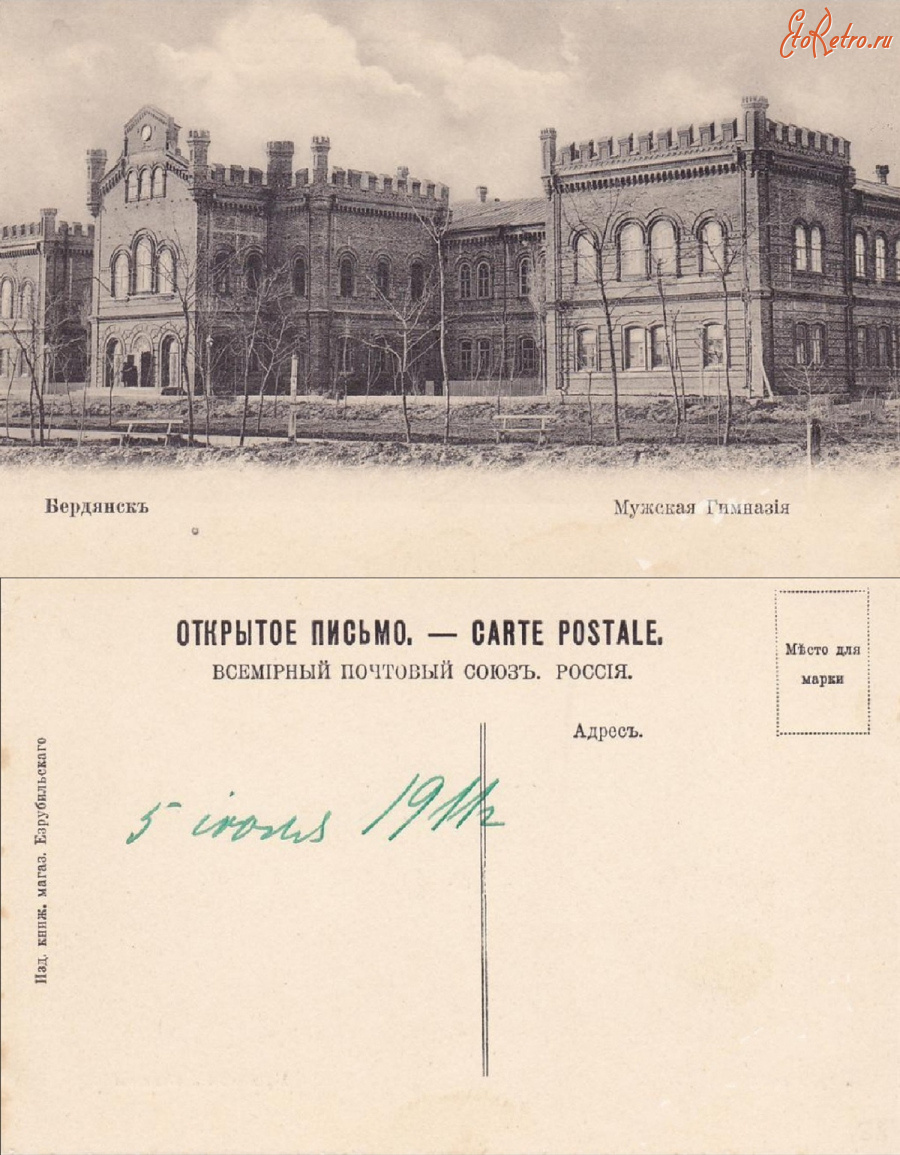 EtoRetro.ru
Бердянскъ
Мужская Гимназія
ОТКРЫТОЕ ПИСЬМО. — CARTE POSTALE.
ВСЕМІРНЫЙ ПОЧТОВЫЙ СОЮЗЪ. РОССІЯ.
Мѣсто для
марки
Адресъ.
5 іюля 1911г
Изд. книж. магаз. Езрубильскаго